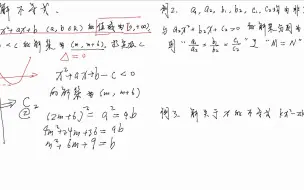 解不等式.
x²+ax+b (a,b∈R) 的值域为[0,+∞)
<c 的解集为 (m, m+6), 求实数 c
Δ=0
x²+ax+b-c<0
的解集为 (m, m+6)
C
(2m+6)²=a²=ab
4m²+24m+36=ab
m²+6m+9=b
例2. a₁, a₂, b₁, b₂, c₁, c₂ 均为非
与 a₂x²+b₂x+c₂>0 的解集分别为
则 "a₁/a₂=b₁/b₂=c₁/c₂" 是 "M=N"
例3. 解关于 x 的不等式